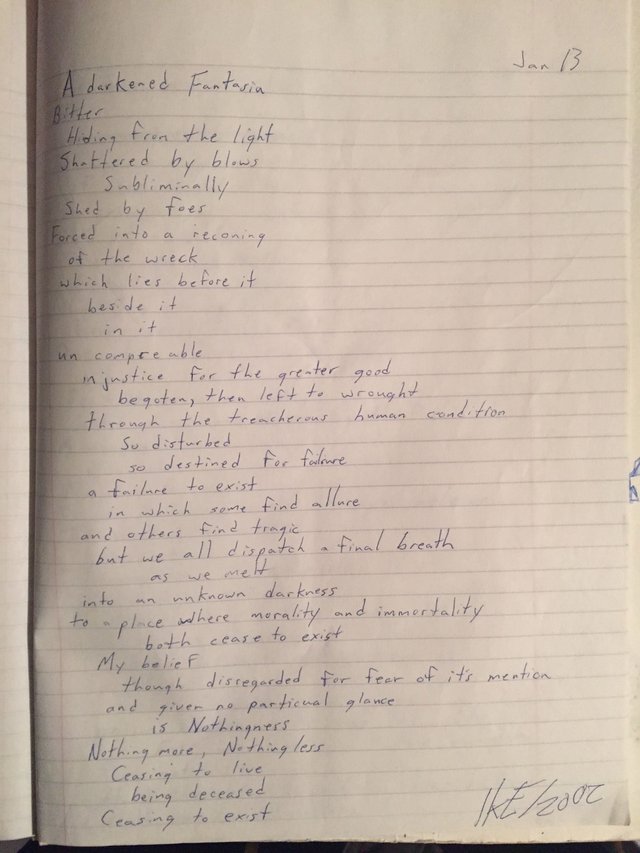 Jan 13
A darkened Fantasia
Bitter
Hiding from the light
Shattered by blows
Subliminally
Shed by foes
Forced into a reconing
of the wreck
which lies before it
beside it
in it
un compreable
injustice for the greater good
begoten, then left to wrought
through the treacherous human condition
So disturbed
so destined for failure
a failure to exist
in which some find allure
and others find tragic
but we all dispatch a final breath
as we melt
into an unknown darkness
to a place where morality and immortality
both cease to exist
My belief
though disregarded for fear of it's mention
and given no particual glance
is Nothingness
Nothing more, Nothing less
Ceasing to live
being deceased
Ceasing to exist
IKE/2002